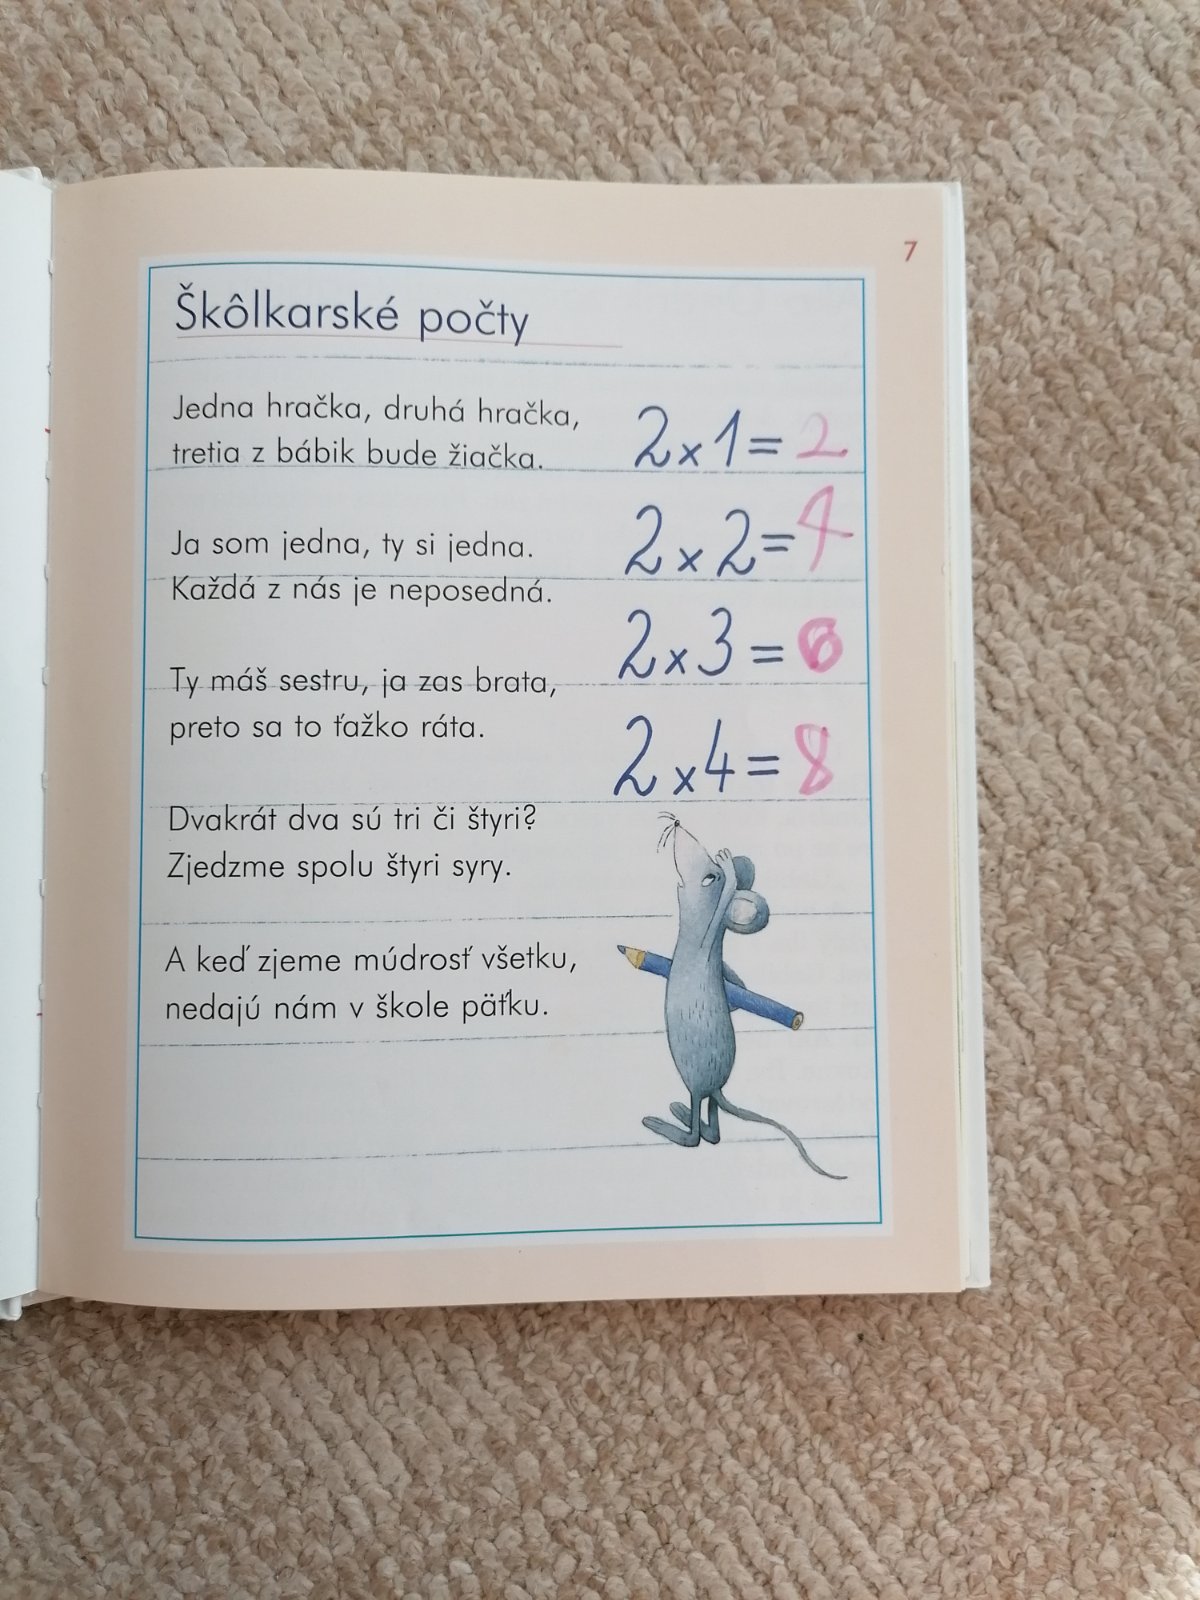 7
Škôlkarské počty
Jedna hračka, druhá hračka,
tretia z bábik bude žiačka.
Ja som jedna, ty si jedna.
Každá z nás je neposedná.
Ty máš sestru, ja zas brata,
preto sa to ťažko ráta.
Dvakrát dva sú tri či štyri?
Zjedzme spolu štyri syry.
A keď zjeme múdrosť všetku,
nedajú nám v škole päťku.
2x1=2
2x2=4
2x3=6
2x4=8